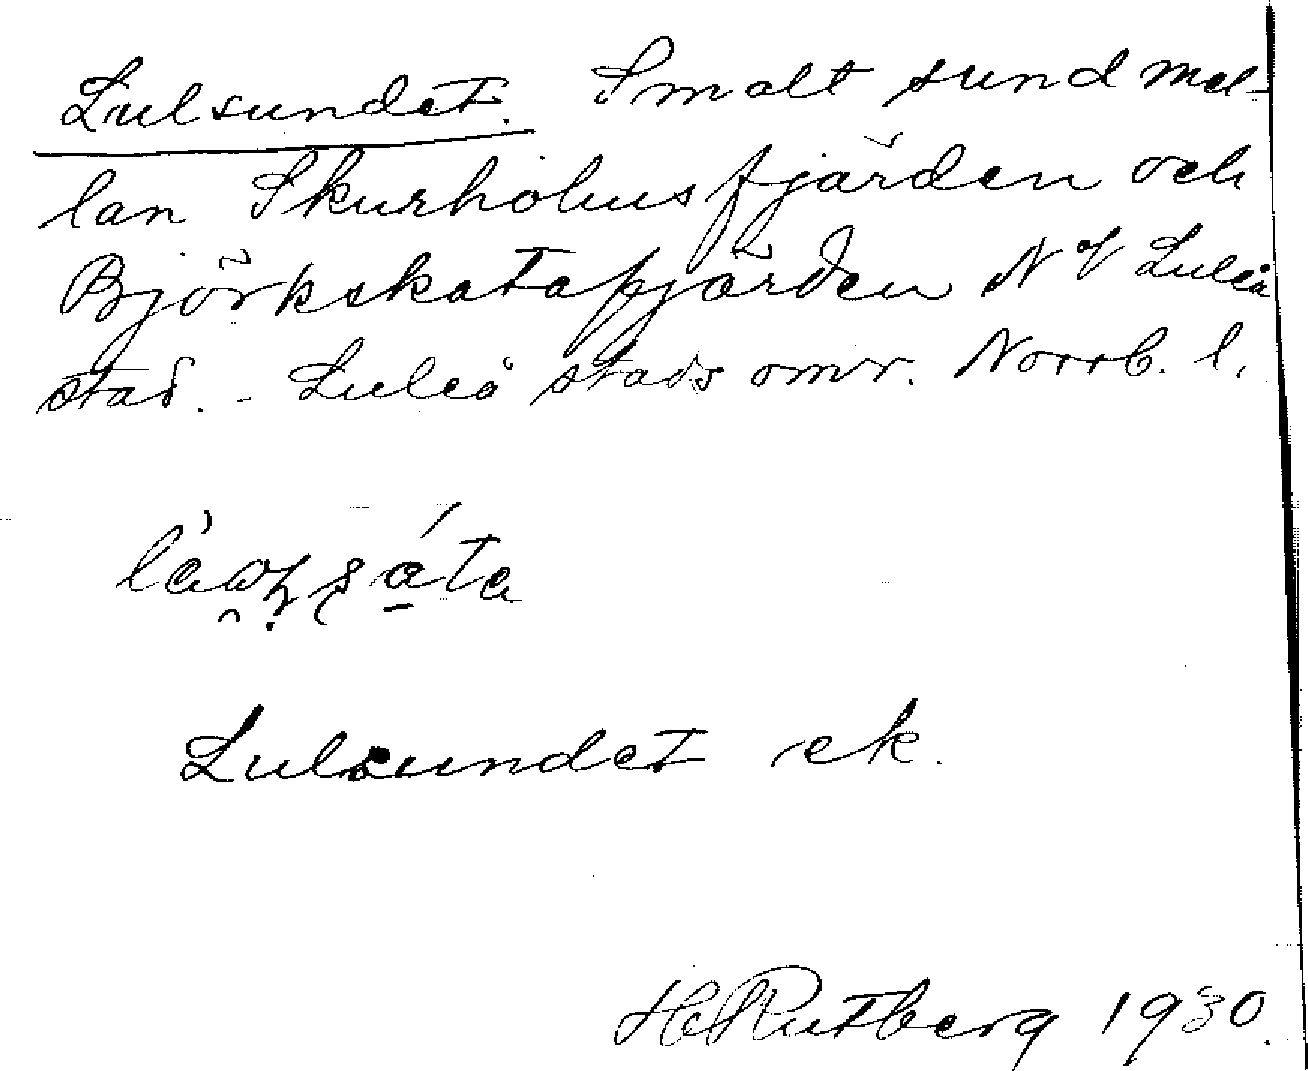 Lulsundet. Smalt sund mel-
lan Skurholmsfjärden och
Björkskatafjärden N of Luleå
stad. - Luleå stads omr. Norrb. l.
Lulsundet ek.
H Rutberg 1930.